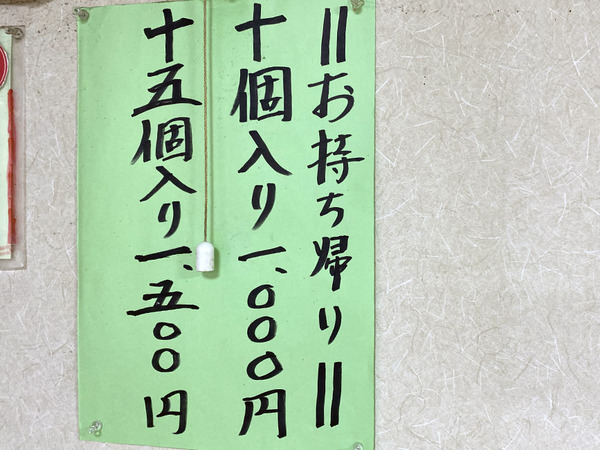 ＝お持ち帰り＝
十個入り一、〇〇〇円
十五個入り一、五〇〇円